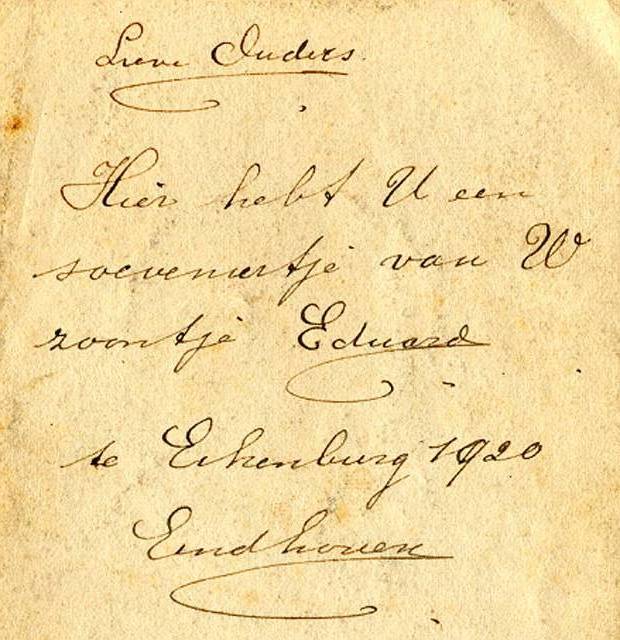 Lieve Ouders.
Hier hebt U een
soevenirtje van W
zoontje Eduard
te Eikenburg 1920
Eindhoven